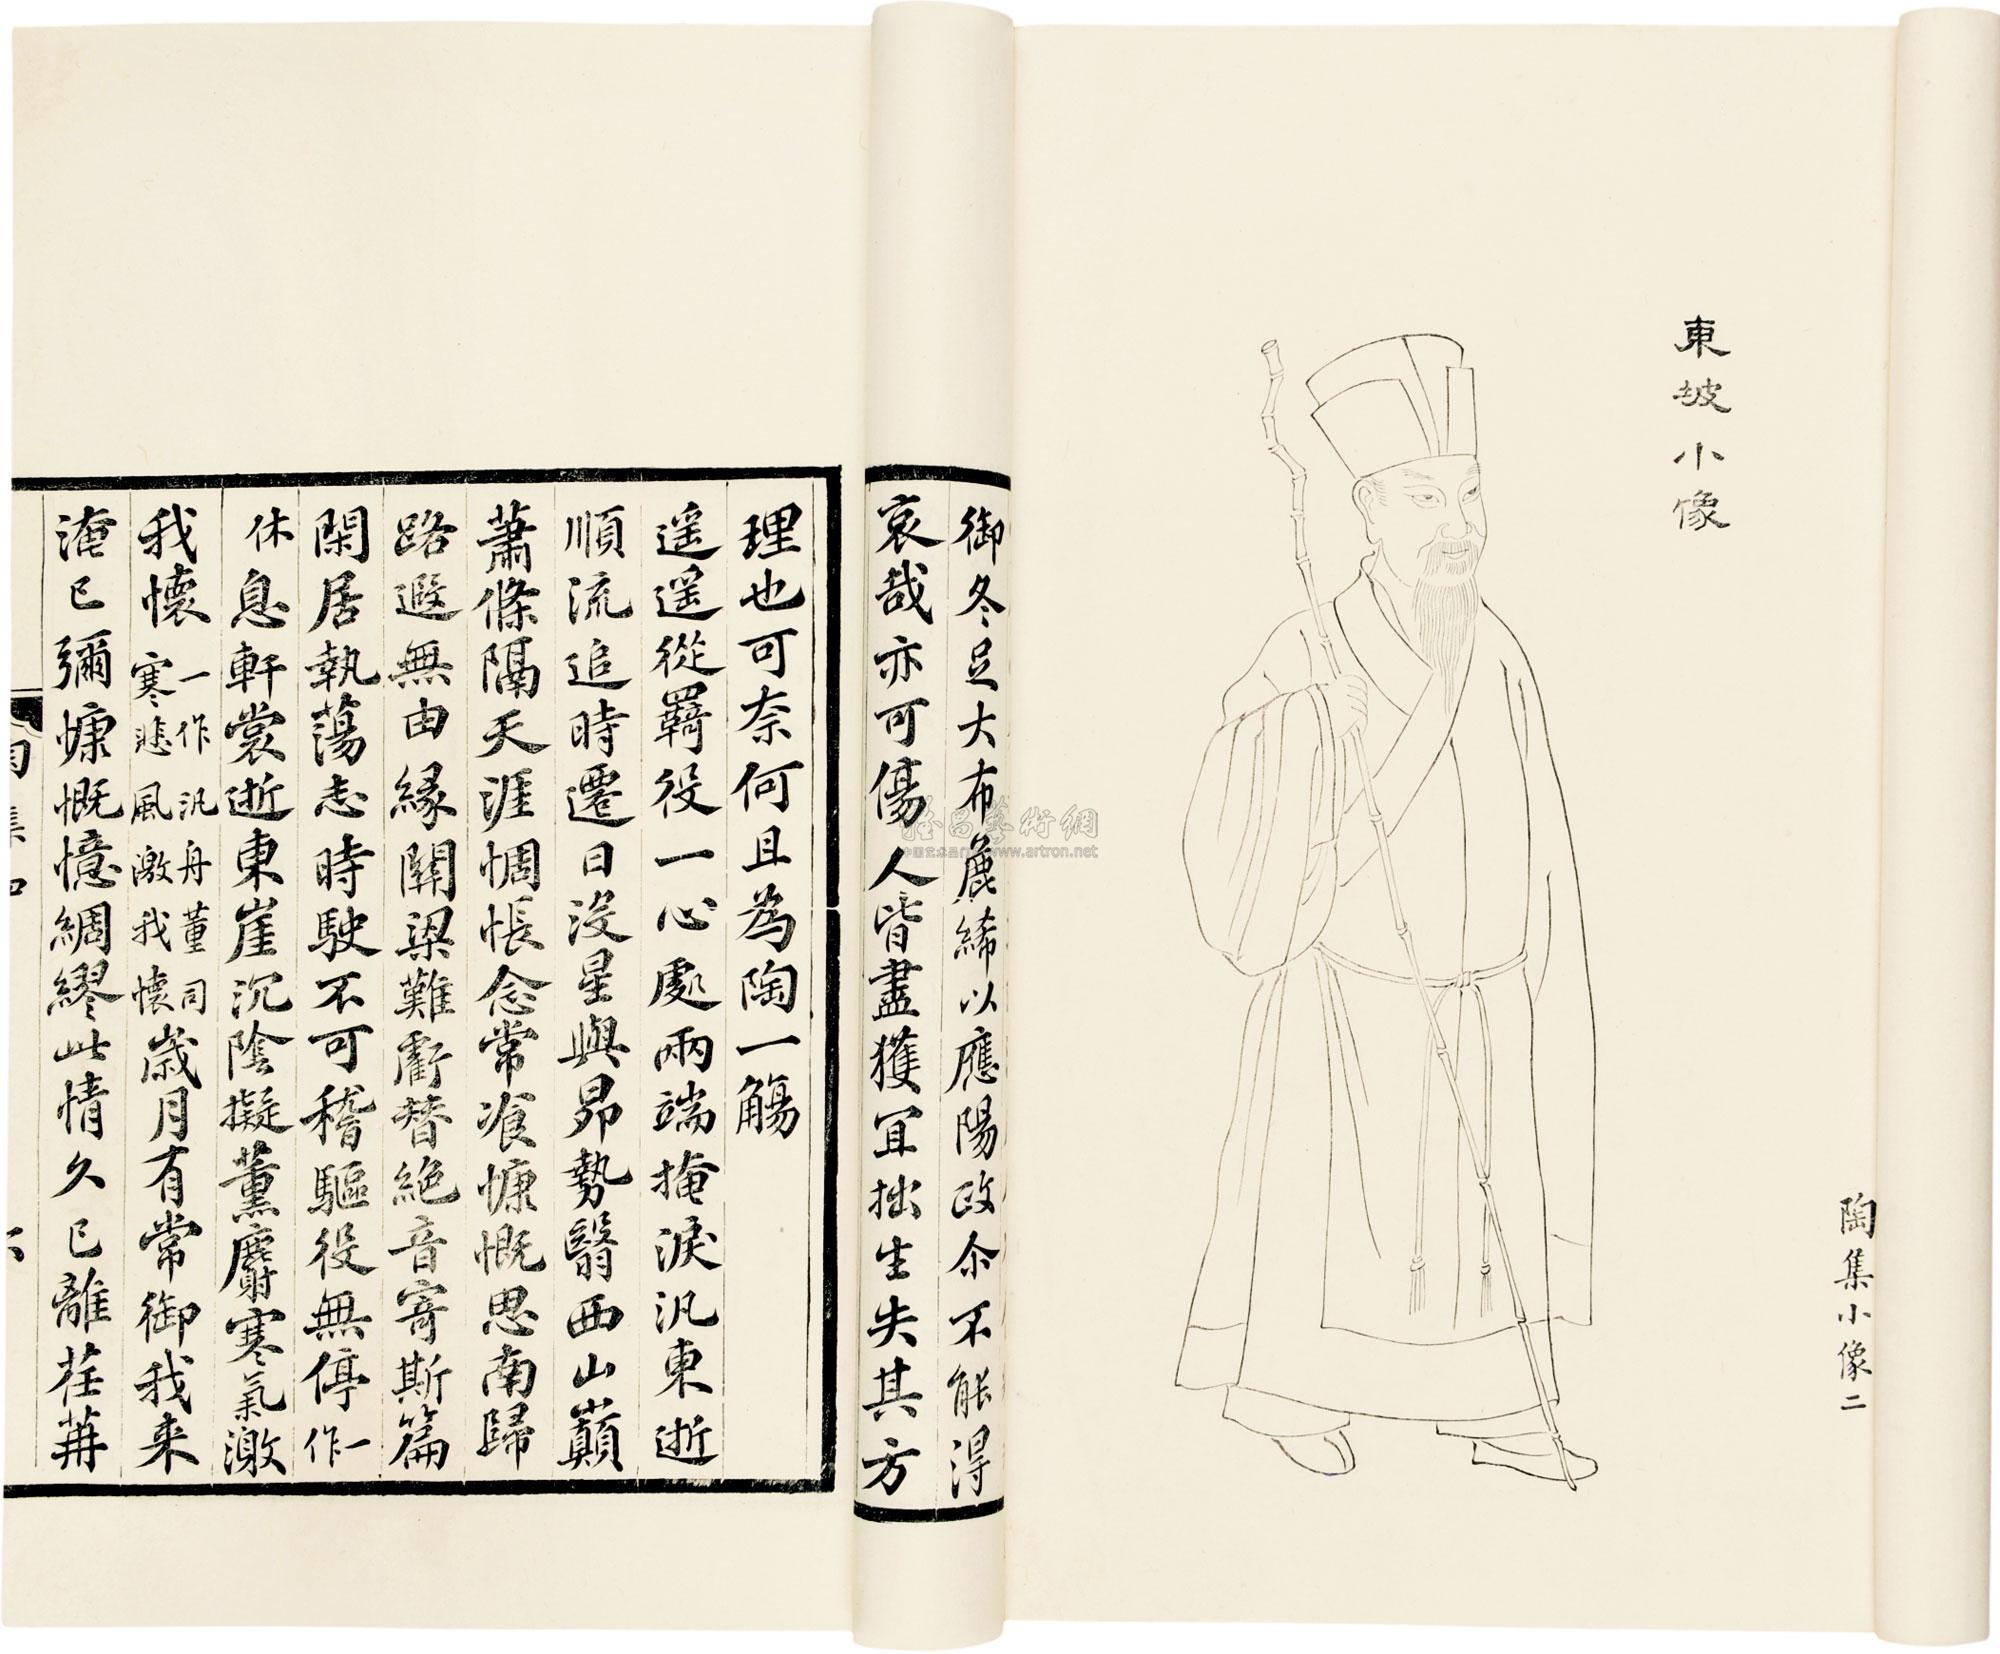 東坡小像
陶集小像二
御冬足大布麁絺以應陽政尒不能得
哀哉亦可傷人皆盡獲宜拙生失其方
理也可奈何且為陶一觴
遥遥從羇役一心處兩端掩淚汎東逝
順流追時遷日沒星與昴勢翳西山巔
蕭條隔天涯惆悵念常飡慷慨思南歸
路遐無由緣關梁難虧替絶音寄斯篇
閑居執蕩志時駛不可稽驅役無停一作
休息軒裳逝東崖沉陰擬薰麝寒氣激
我懷一作汎舟董司寒悲風激我懷歲月有常御我来
淹已彌慷慨憶綢繆此情久已離荏苒
www.artron.net